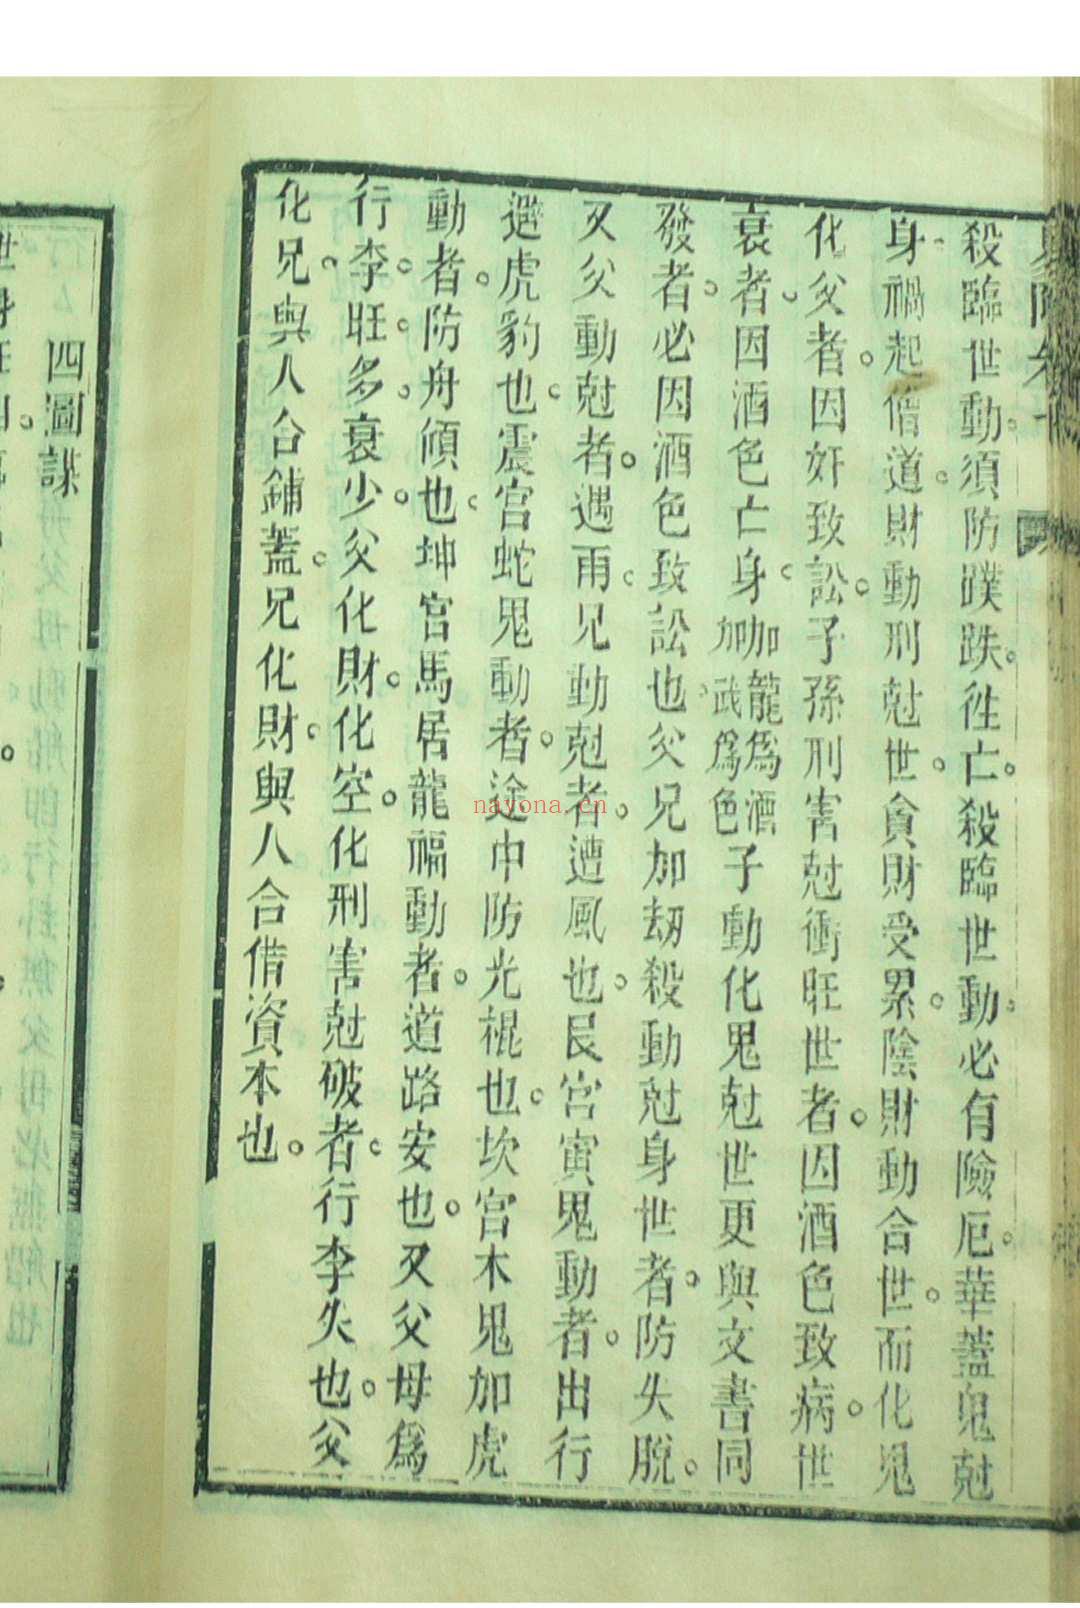 殺臨世動須防蹼跌徃亡殺臨世動必有險厄華蓋鬼尅
身禍起僧道財動刑尅世貪財受累陰財動合世而化鬼
化父者因奸致訟子孫刑害尅衝旺世者因酒色致病世
衰者因酒色亡身加龍爲酒加武爲色子動化鬼尅世更與文書同
發者必因酒色致訟也父兄加刼殺動尅身世者防失脫
又父動尅者遇雨兄動尅者遭風也艮宮寅鬼動者出行
遊虎豹也震宮蛇鬼動者途中防光棍也坎宮木鬼加虎
動者防舟傾也坤宮馬居龍福動者道路安也又父母爲
行李旺多衰少父化財化空化刑害尅破者行李失也父
化兄與人合鋪蓋兄化財與人合借資本也
四圖謀
nayona.cn